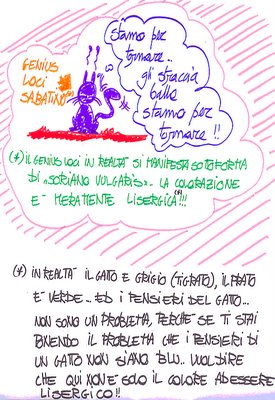 GENIUS
LOCI
SABATINO
stiamo per
tornare..
gli straccia
balle
stiamo per
tornare !!
(*) IL GENIUS LOCI IN REALTA' SI MANIFESTA SOTOFORMA
DI "SORIANO VULGARIS".. LA COLORAZIONE
E' MERAMENTE LISERGICA (*)!!!
(*) IN REALTA' IL GATO E' GRIGIO (TIGRATO), IL PRATO
E' VERDE... ED I PENSIERI DEL GATO...
NON SONO UN PROBLEMA, PERCHE' SE TI STAI
PONENDO IL PROBLEMA CHE I PENSIERI DI
UN GATTO NON SIANO BLU.. VUOL DIRE
CHE QUI NON E' SOLO IL COLORE AD ESSERE
LISERGICO!!